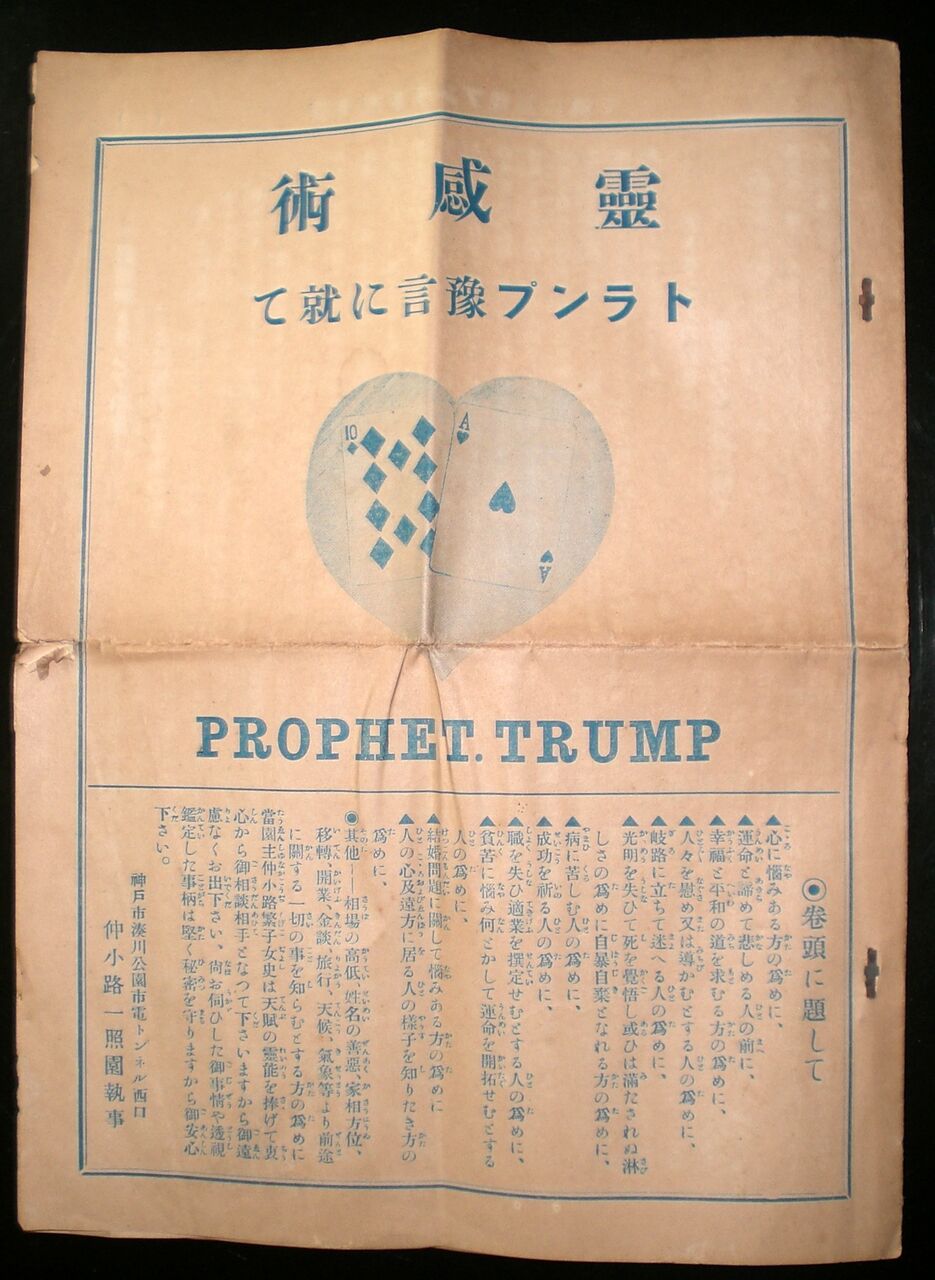 靈感術
トランプ豫言に就て
10
A
A
PROPHET. TRUMP
◉卷頭に題して
▲心に惱みある方の爲めに、
▲運命と諦めて悲しめる人の前に、
▲幸福と平和の道を求むる方の爲めに、
▲人々を慰め又は導かむとする人の爲めに、
▲岐路に立ちて迷へる人の爲めに、
▲光明を失ひて死を覺悟し或ひは滿たされぬ淋
しさの爲めに自暴自棄となれる方の爲めに、
▲病に苦しむ人の爲めに、
▲成功を祈る人の爲めに、
▲職を失ひ適業を撰定せむとする人の爲めに、
▲貧苦に惱み何とかして運命を開拓せむとする
人の爲めに、
▲結婚問題に關して惱みある方の爲めに
▲人の心及遠方に居る人の樣子を知りたき方の
爲めに、
◉其他――相場の高低、姓名の善惡、家相方位、
移轉、開業、金談、旅行、天候、氣象等より前途
に關する一切の事を知らむとする方の爲めに
當園主仲小路繁子女史は天賦の靈能を捧げて衷
心から御相談相手となつて下さいますから御遠
慮なくお出下さい、尙お伺ひした御事情や透視
鑑定した事柄は堅く秘密を守りますから御安心
下さい。
神戸市湊川公園市電トンネル西口
仲小路一照園執事